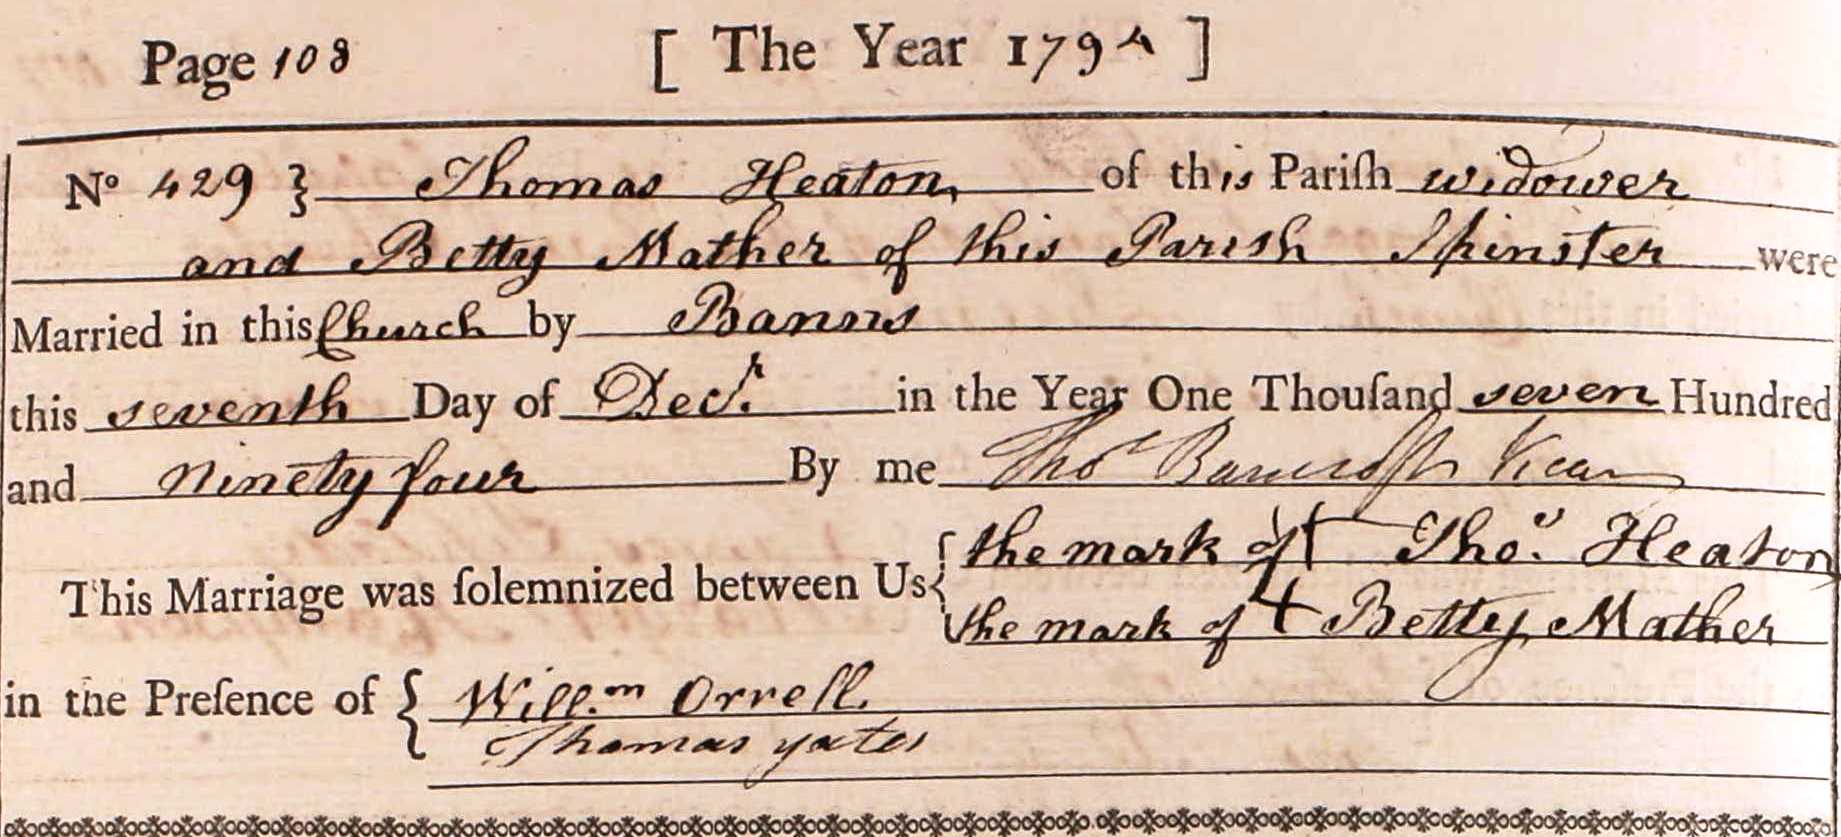 Page 108 [ The Year 1794 ]
No 429 } Thomas Heaton of this Pariſh widower
and Betty Mather of this Parish Spinster were
Married in this Church by Banns
this seventh Day of Decr. in the Year One Thouſand seven Hundred
and Ninety four By me Thos Bancroft Vicar
This Marriage was ſolemnized between Us { the mark of + Thos. Heaton
the mark of + Betty Mather
in the Preſence of { Willm Orrell.
Thomas yates